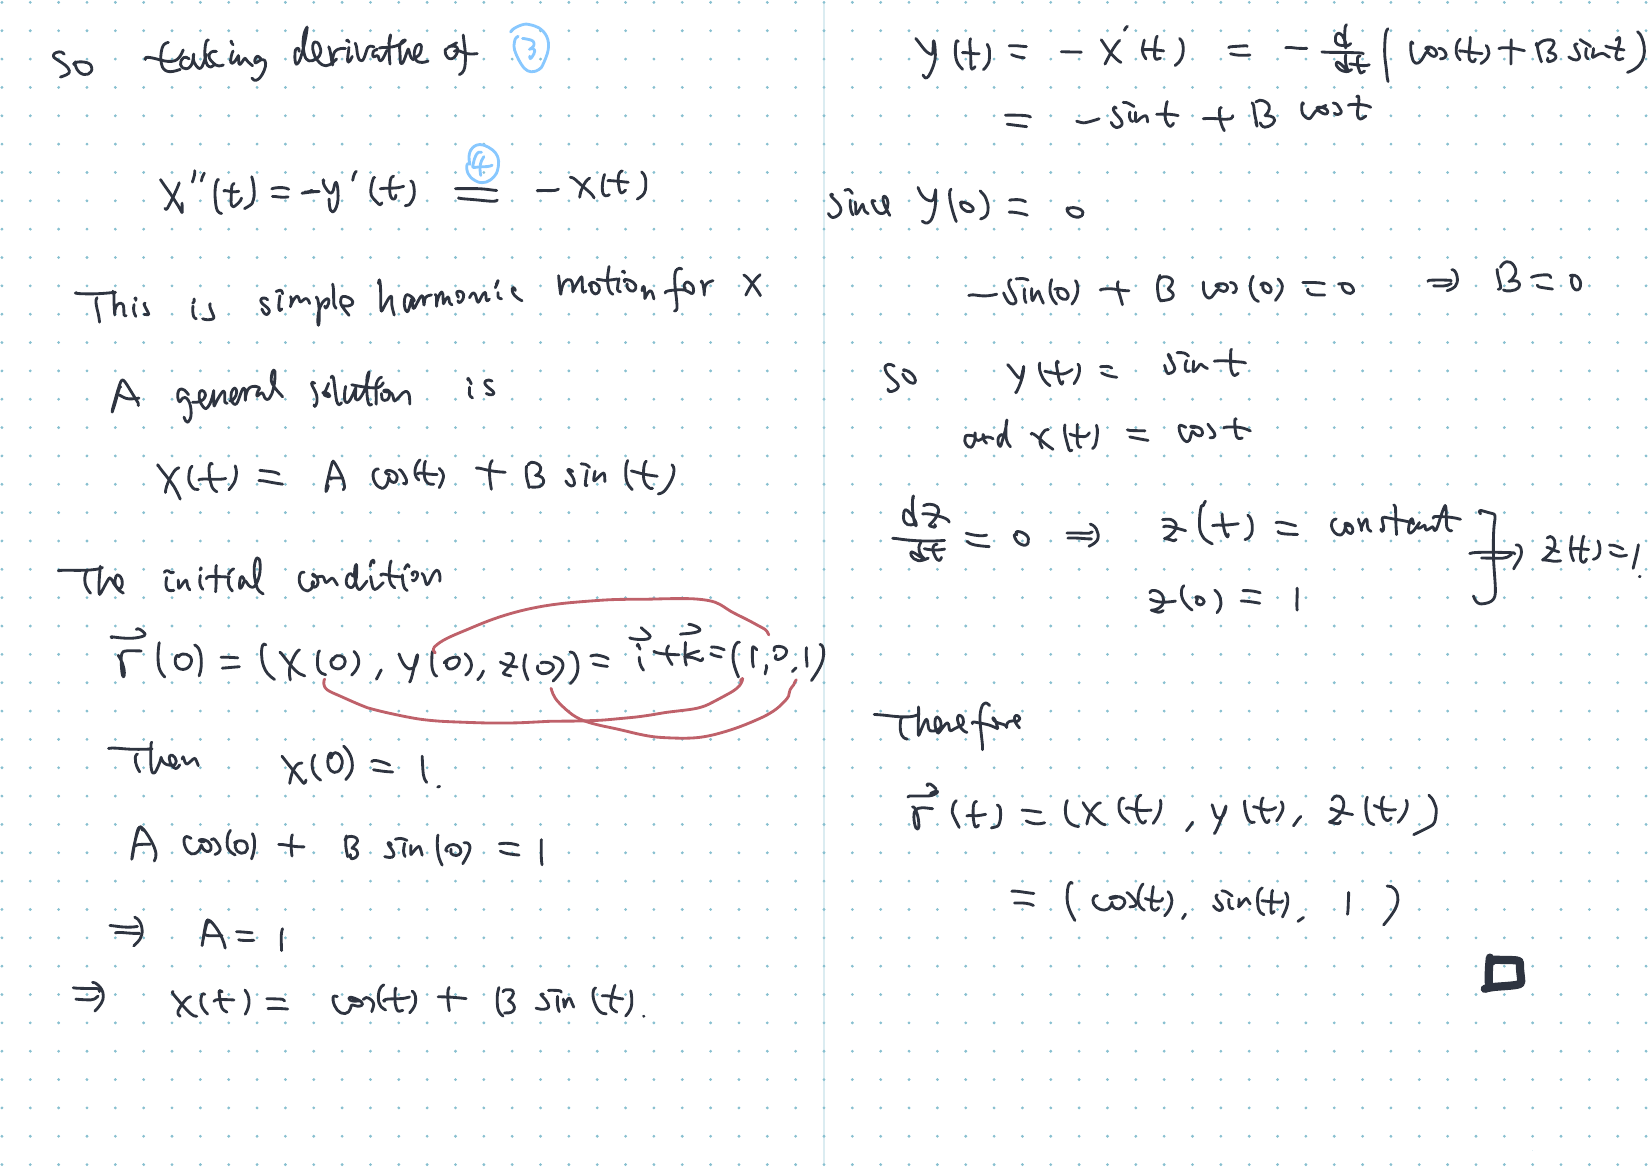 So taking derivative of ③
x''(t) = -y'(t) ④= -x(t)
This is simple harmonic motion for x
A general solution is
x(t) = A cos(t) + B sin(t)
The initial condition
r⃗(0) = (x(0), y(0), z(0)) = i⃗+k⃗ = (1,0,1)
Then x(0) = 1.
A cos(0) + B sin(0) = 1
⇒ A = 1
⇒ x(t) = cos(t) + B sin(t).
y(t) = - x'(t) = - d/dt (cos(t) + B sint)
= -sint + B cost
since y(0) = 0
-sin(0) + B cos(0) = 0 ⇒ B = 0
So y(t) = sint
and x(t) = cost
dz/dt = 0 ⇒ z(t) = constant
z(0) = 1 } ⇒ z(t) = 1.
Therefore
r⃗(t) = (x(t), y(t), z(t))
= (cos(t), sin(t), 1)
□